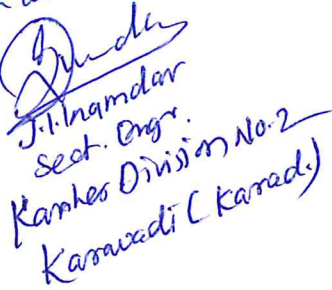 J.I. Inamdar
Sect. Engr.
Kanher Division No. 2
Karavadi (Karad.)